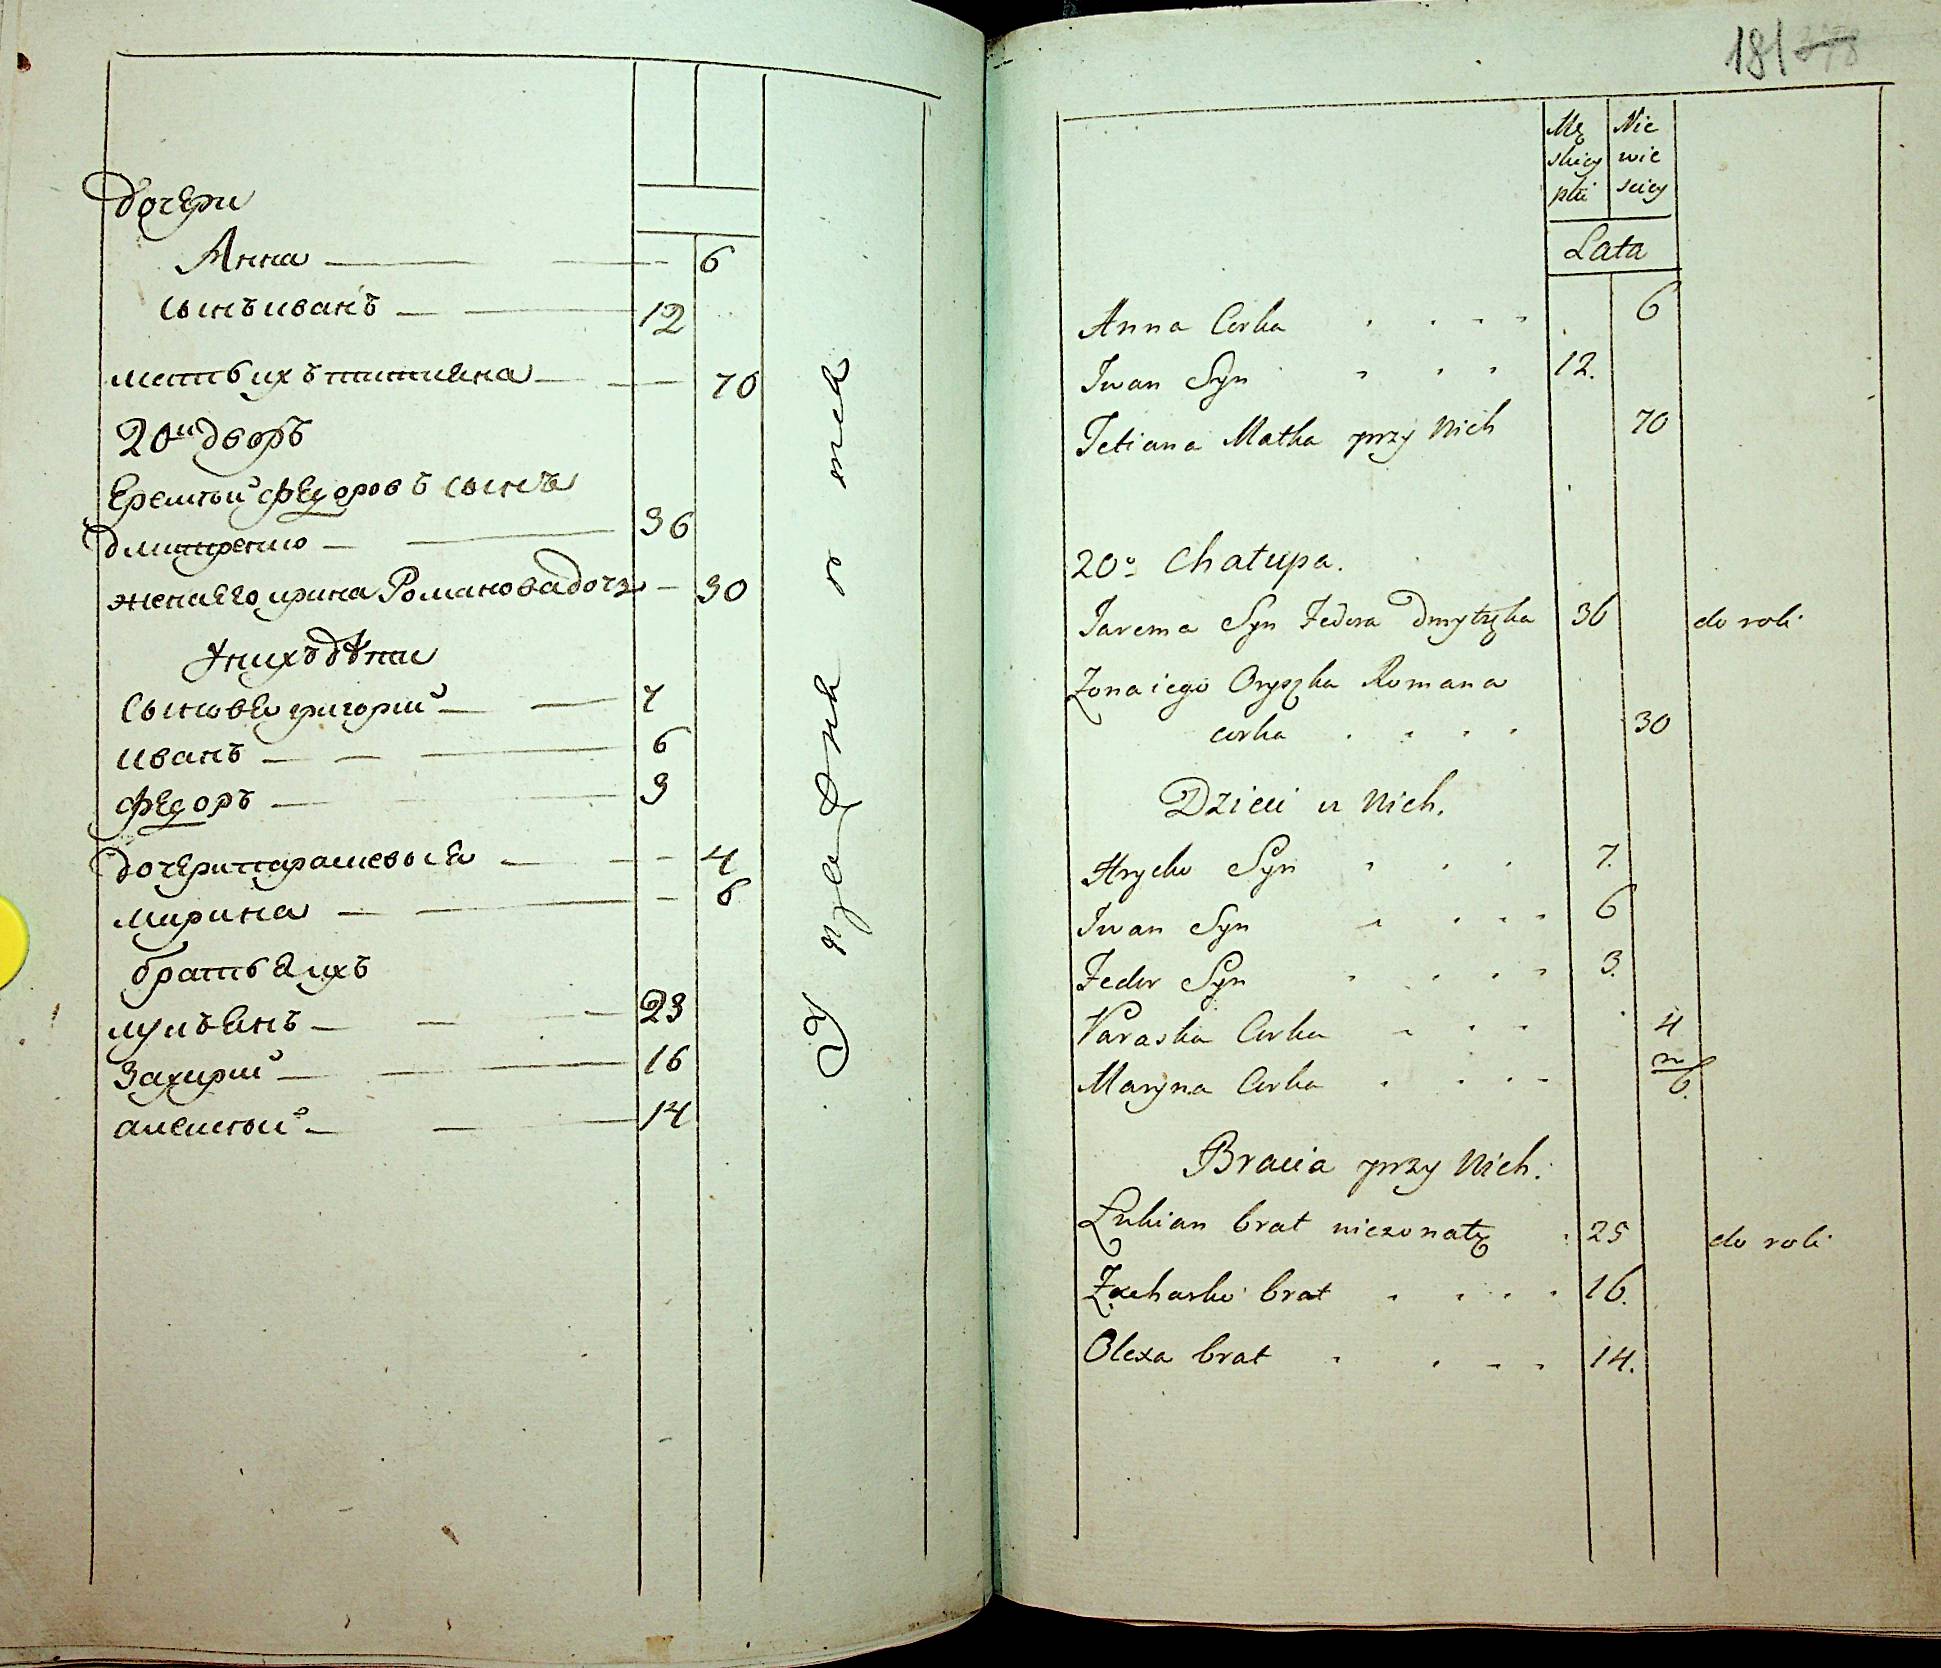 дочери
Анна — — — 6
сынъ иванъ — — 12
мать ихъ татиана — — — 70
20й дворъ
Еремѣй федоровъ сынъ
дмитренко — — 36
жена Его ирина Романова дочь — 30
У нихъ дѣти
Сыновья григорий — — 7
иванъ — — — 6
федоръ — — — 3
дочери парасковья — — — 4
марина — — — 6
братья ихъ
лукъянъ — — — 23
Захарий — — — 16
алексѣй — — — 14
181 378
Mę Nie
skiey wie
płci sciey
Lata
Anna Corka 6
Iwan Syn 12.
Tetiana Matka przy Nich 70
20o Chałupa.
Jarema Syn Fedora Dmytrzka 36 do roli
Zona iego Oryszka Romana
corka 30
Dzieci u Nich.
Hryćko Syn 7.
Iwan Syn 6
Fedor Syn 3.
Paraska Corka 4
Maryna Corka 6.
Bracia przy Nich.
Łukian brat niezonaty 25 do roli
Zacharko brat 16.
Olexa brat 14.